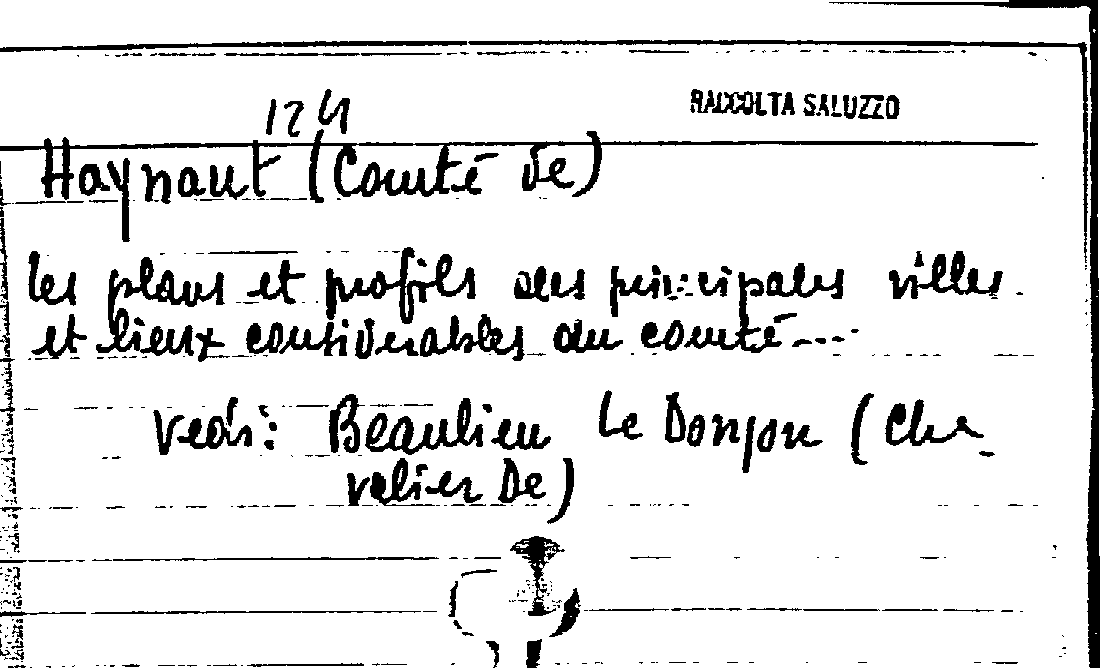 124
RACCOLTA SALUZZO
Haynaut (Comté de)
les plans et profils des principales villes
et lieux considerables du comté...
vedi: Beaulieu Le Donjon (Che-
valier De)